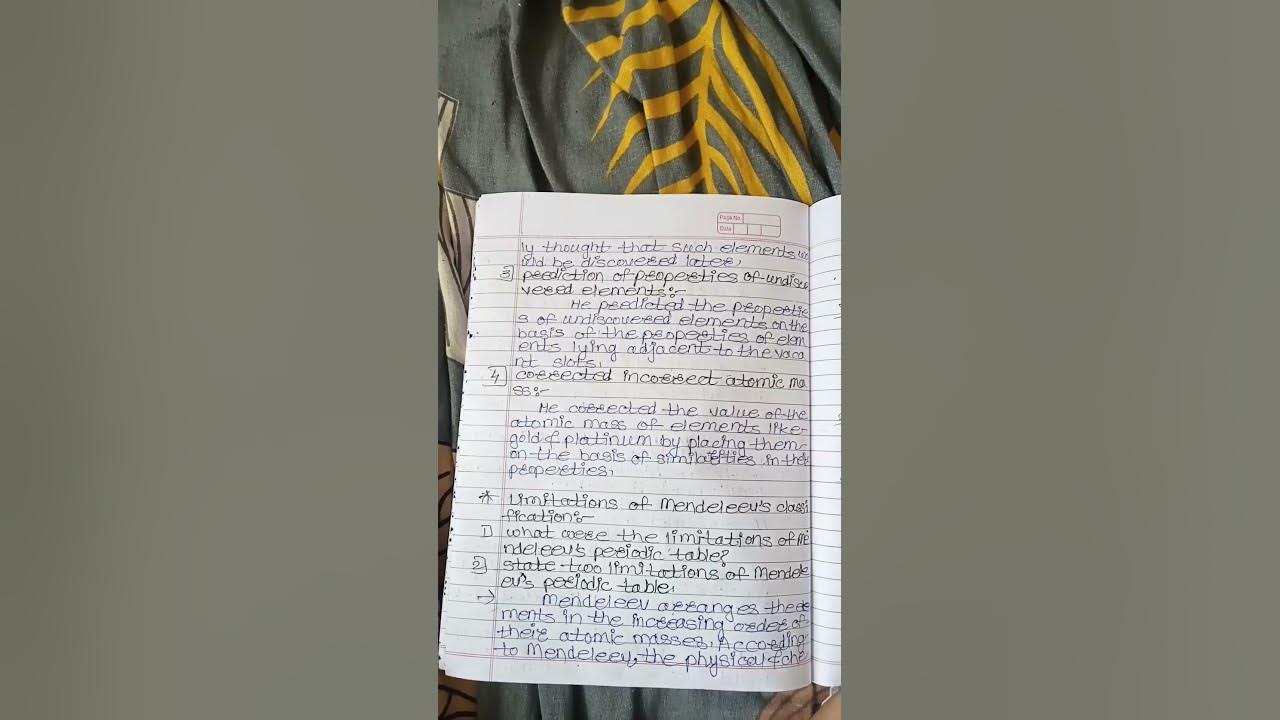 Page No.
Date
ly thought that such elements wo
uld be discovered later.
3] prediction of properties of undisco
vered elements:-
He predicted the propertie
s of undiscovered elements on the
basis of the properties of elem
ents lying adjacent to the vaca
nt slots.
4] corrected incorrect atomic ma
ss:-
He corrected the value of the
atomic mass of elements like
gold & platinum by placing them
on the basis of similarities in their
properties.
* Limitations of Mendeleev's classi
fication:-
1] what were the limitations of Me
ndeleev's periodic table?
2] state two limitations of Mendele
ev's periodic table.
→ Mendeleev arranges the ele
ments in the increasing order of
their atomic masses. According
to Mendeleev, the physical & che